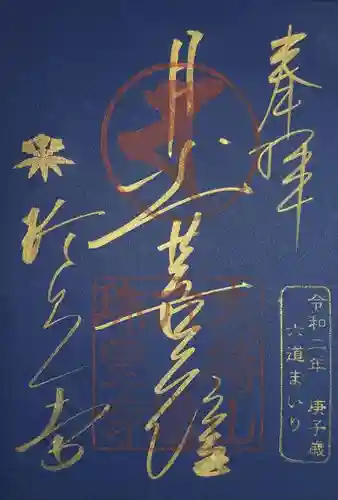 奉拝
月光菩薩
珍皇寺
令和二年 庚子歳
六道まいり